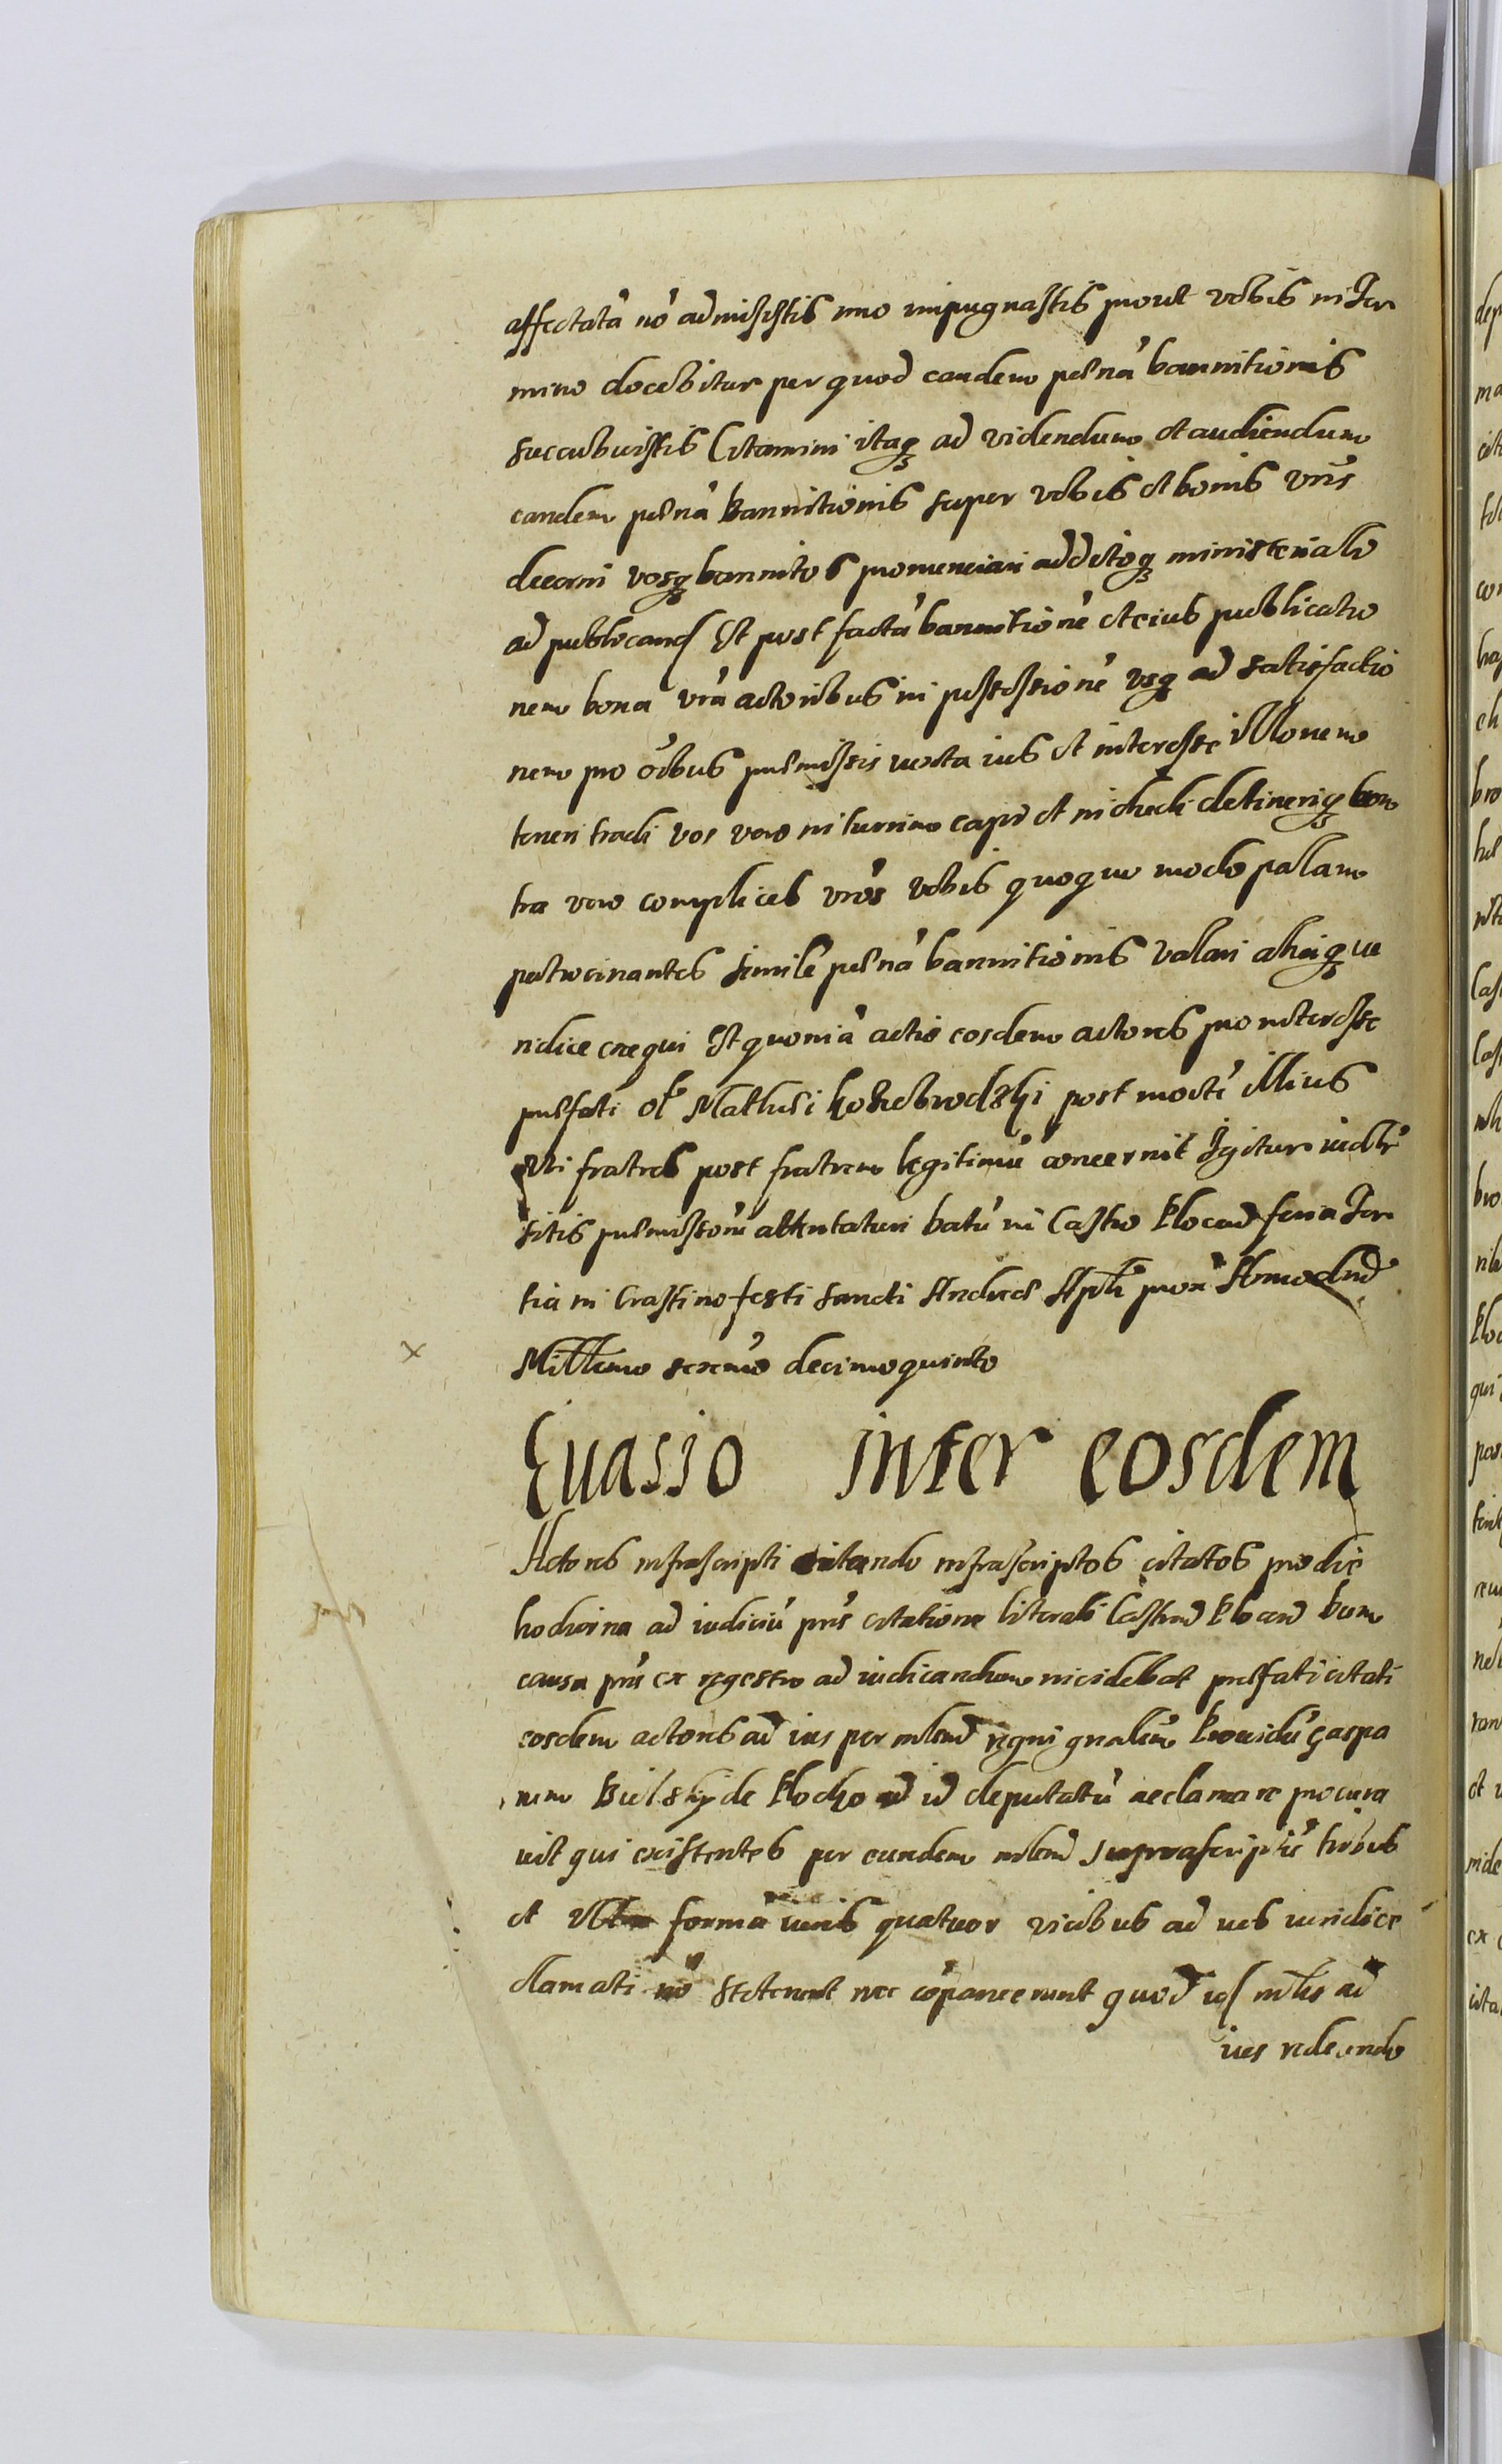 affectatā nō admisistis imo impugnastis prout vobis in Ter
mino docebitur per quod eandem poenā bannitionis
succubuistis Citamini itaq ad videndum et audiendum
eandem poenā bannitionis super vobis et bonis vrīs
decerni vosq bannitos pronunciari additoq ministeriale
ad publicand Et post factā bannitionē et eius publicatio
nem bona vrā actoribus in possessionē vsq ad satisfactio
nem pro oībus praemissis iuxta ius et interesse illorum
teneri tradi vos vero in turrim capi et includi detineriq con
tra vero complices vrōs vobis quoquo modo palam
patrocinantes similē poenā bannitionis valari aliaq iu
ridice exequi Et quoniā actio eosdem actores pro interesse
praefati ol Mathei Kossobrodzki post mortē illius
Vti fratres post fratrem legitimū concernit Igitur iudlr
sitis praemissorū attentaturi datū in Castro Plocen feria Ter
tia in Crastino festi sancti Andreae Apli prox Anno dni
Millemo sexcmo decimoquinto
Euasio inter eosdem
Actores infrascripti citando infrascriptos citatos pro die
hodierna ad iudiciū prīs citatione literali Castren Plocen dum
causa prīs ex regestro ad iudicandum incidebat praefati citati
eosdem actores ad ius per mlem regni gnalem Prouidū Gaspa
rum Bielski de Plocko ad id deputatū acclamare procura
uit qui existentes per eundem mlem suprascriptū tribus
et vltra formā iuris quatuor vicibus ad ius iuridice
clamati nō steterunt nec cōparuerunt quod id mlis ad
ius redeundo